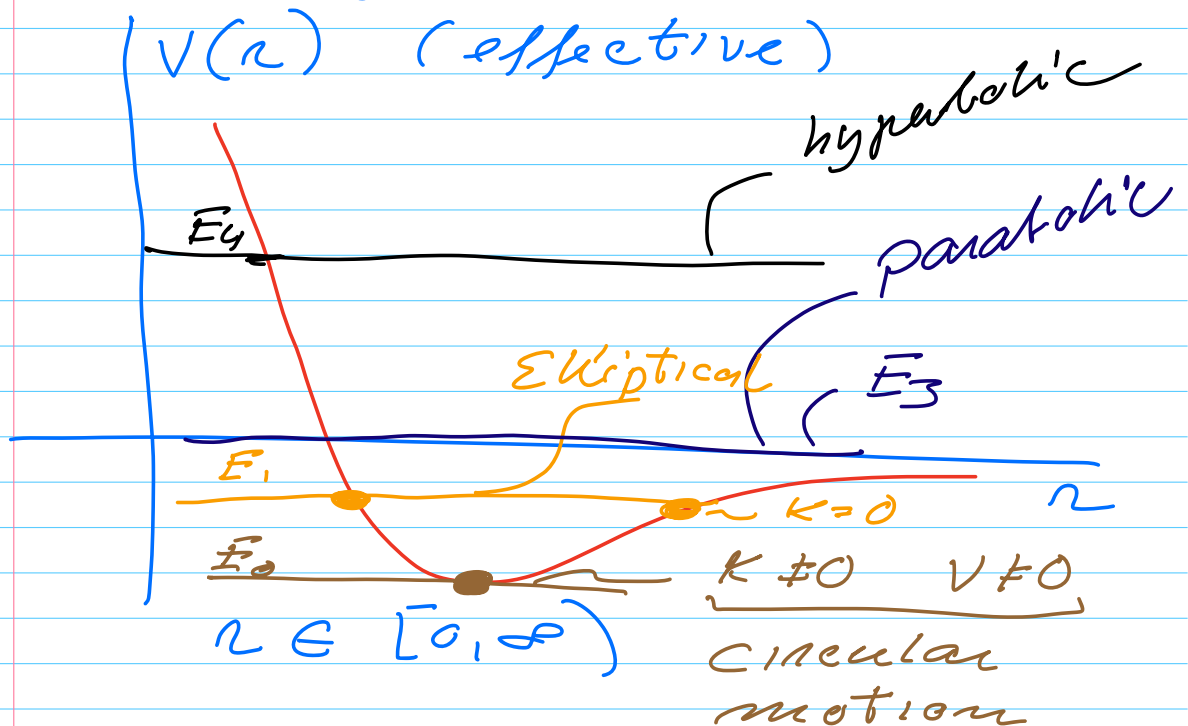 V(r) (effective)
hyperbolic
E4
parabolic
Elliptical
E3
E1
r
~ K=0
E0
K≠0 V≠0
r ∈ [0,∞)
circular
motion